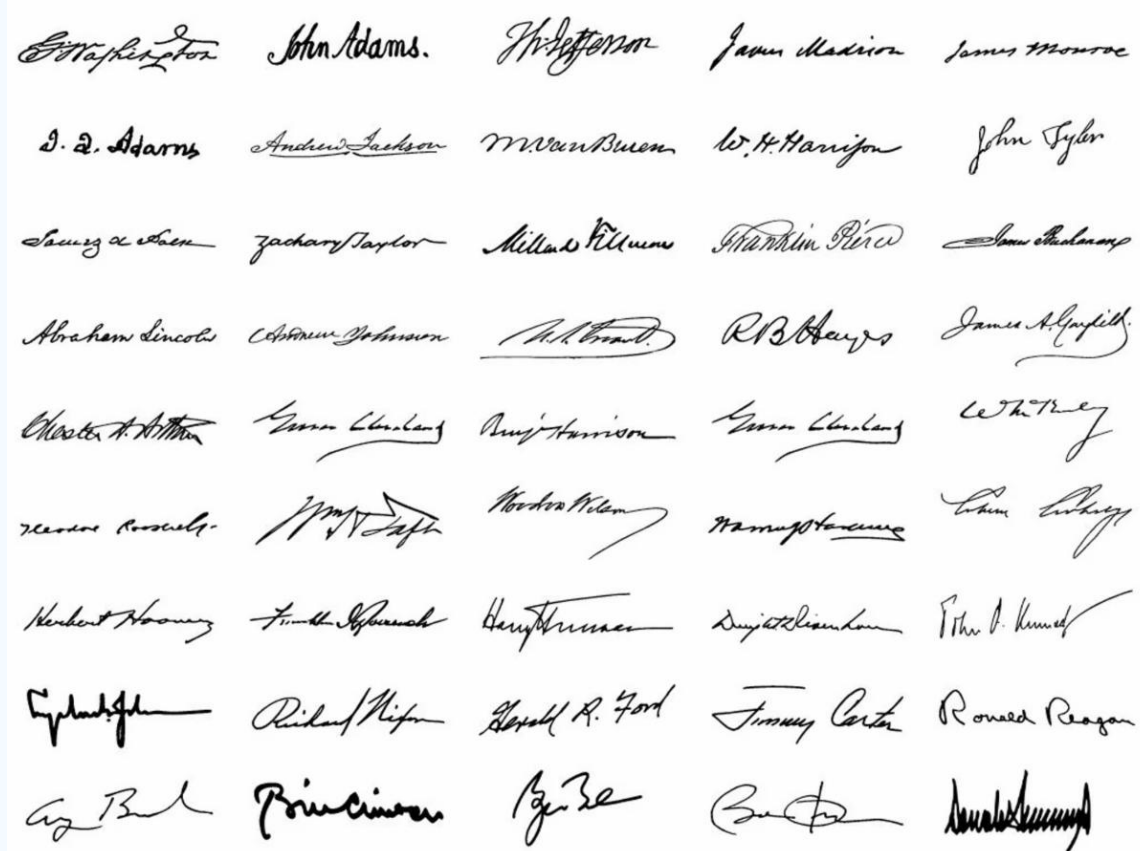 G. Washington John Adams. Th. Jefferson James Madison James Monroe
J. Q. Adams Andrew Jackson M. Van Buren W. H. Harrison John Tyler
James K Polk Zachary Taylor Millard Fillmore Franklin Pierce James Buchanan
Abraham Lincoln Andrew Johnson U. S. Grant. R B Hayes James A. Garfield.
Chester A. Arthur Grover Cleveland Benj Harrison Grover Cleveland Wm McKinley
Theodore Roosevelt Wm H Taft Woodrow Wilson Warren G Harding Calvin Coolidge
Herbert Hoover Franklin D Roosevelt Harry Truman Dwight D Eisenhower John F. Kennedy
Lyndon B. Johnson Richard Nixon Gerald R. Ford Jimmy Carter Ronald Reagan
G Bush Bill Clinton G Bush Barack Obama Donald Trump